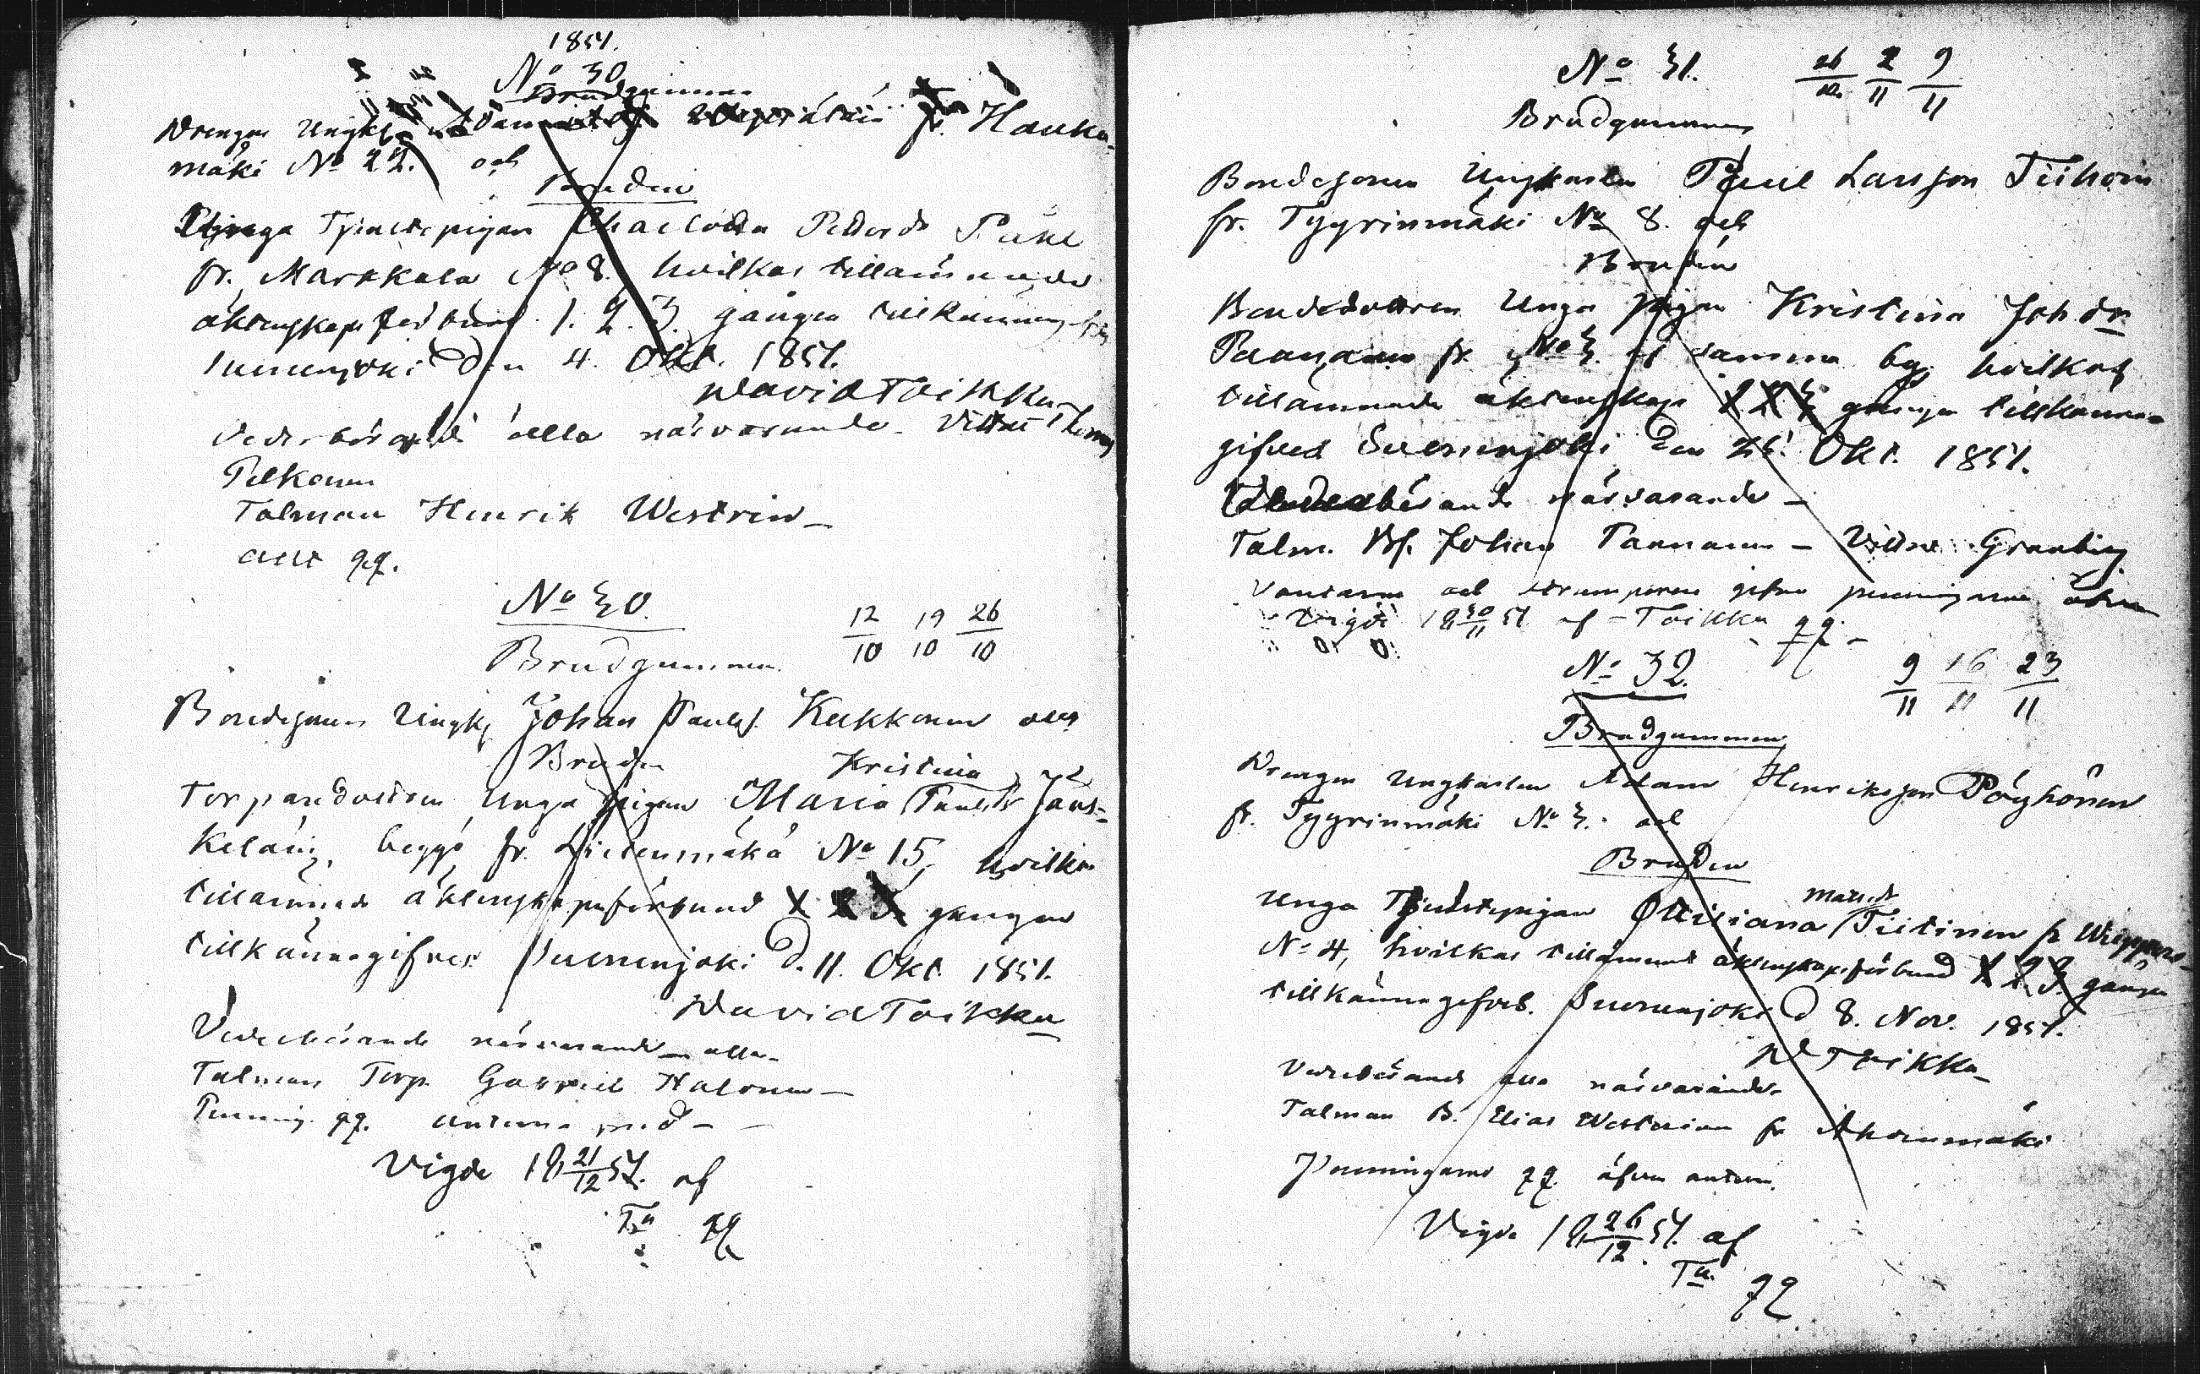 1851.
No 30
Brudgummen
Drengen Ungk. fr. Hauka-
mäki No 22. och
Bruden
Unga Tjenstepigan Charlotta Petersdr
fr. Markkala No 8. hvilkas tillämnade
äktenskapsförbund 1. 2. 3. gången tillkännag
Suonenjoki Den 4. Okt. 1851.
David Toikka
Vederbörande alla närvarande. Vittne
Pelkonen
Talman Henrik Westrin
allt qq.
No 30.
12/10 19/10 26/10
Brudgummen.
Bondesonen Ungk. Johan Paulss. Kukkonen och
Bruden
Kristina
Torparedottren Unga pigan Maria Paulsdr Jäns-
keläin, begge fr. No 15, hvilkas
tillämnade äktenskapsförbund 1 2 3 gången
tillkännagifves Suonenjoki d. 11. Okt. 1851.
David Toikka
Vederbörande närvarande alla
Talman Torp. Gabriel Halonen
Penning. qq.
Vigde 18 21/12 51. af
Ta qq
No 31. 26/10 2/11 9/11
Brudgummen
Bondesonen Ungkarlen Paul Larsson Tiihoin
fr. Tyyrinmäki No 8. och
Bruden
Bondedottren Unga pigan Kristina Joh.dr
Paanane fr. No 3. af samma by, hvilkas
tillämnade äktenskap 1 2 3 gången tillkänna-
gifves Suonenjoki den 25. Okt. 1851.
Vederbörande närvarande
Talm. Bd. Johan Paananen – Vittne Granberg
Vantarne och strumporne gifna penningarne äfven
Vigde 18 30/11 51 af Toikka qq
No 32. 9/11 16/11 23/11
Brudgummen
Drengen Ungkarlen Adam Henriksson Pöyhönen
fr. Tyyrinmäki No 3. och
Bruden
Matsdr
Unga Tjenstepigan Ottiliana Tiitinen fr
No 4, hvilkas tillämnade äktenskapsförbund 1 2 3. gången
tillkännagifves. Suonenjoki d 8. Nov. 1851.
D Toikka
Vederbörande alla närvarande
Talman B. Elias Westerinen fr Ahonmäki
Penningarne qq. äfven
Vigde 18 26/12 51. af
Ta. qq